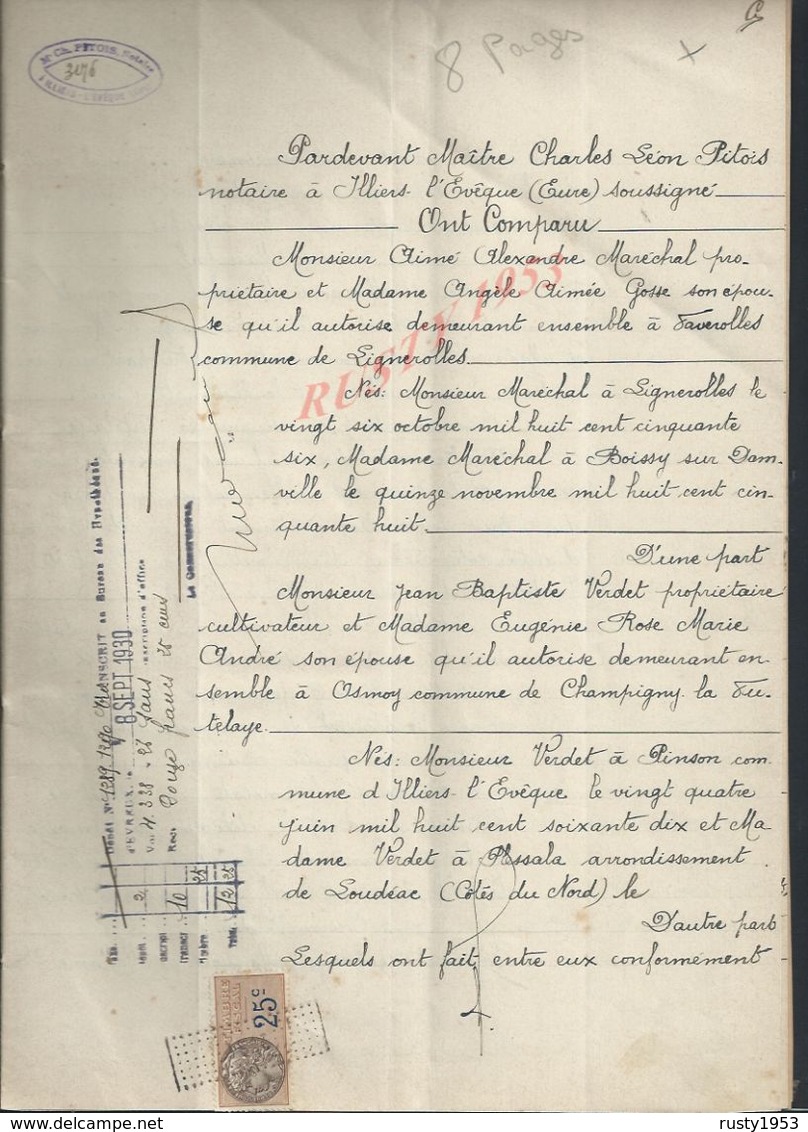 Mᵉ Ch. PITOIS, Notaire
3176
8 Pages
Pardevant Maître Charles Léon Pitois
notaire à Illiers-l'Evêque (Eure) soussigné
Ont Comparu
Monsieur Aimé Alexandre Maréchal pro-
priétaire et Madame Angèle Aimée Gosse son épou-
se qu'il autorise demeurant ensemble à Faverolles
commune de Lignerolles.
Nés: Monsieur Maréchal à Lignerolles le
vingt six octobre mil huit cent cinquante
six, Madame Maréchal à Boissy sur Dam-
ville le quinze novembre mil huit cent cin-
quante huit.
D'une part
Monsieur Jean Baptiste Verdet propriétaire
cultivateur et Madame Eugénie Rose Marie
André son épouse qu'il autorise demeurant en-
semble à Osmoy commune de Champigny-la Fu-
telaye.
Nés: Monsieur Verdet à Pinson com-
mune d'Illiers-l'Evêque le vingt quatre
juin mil huit cent soixante dix et Ma
dame Verdet à Plessala arrondissement
de Loudéac (Côtes du Nord) le
D'autre part
Lesquels ont fait entre eux conformément
TRANSCRIT au Bureau des Hypothèques
d'EVREUX, le 8 SEPT 1930
inscription d'office
Le Conservateur
2
10
25
Total 12 25
TIMBRE
FISCAL
25c
RUSTY 1953
rusty1953